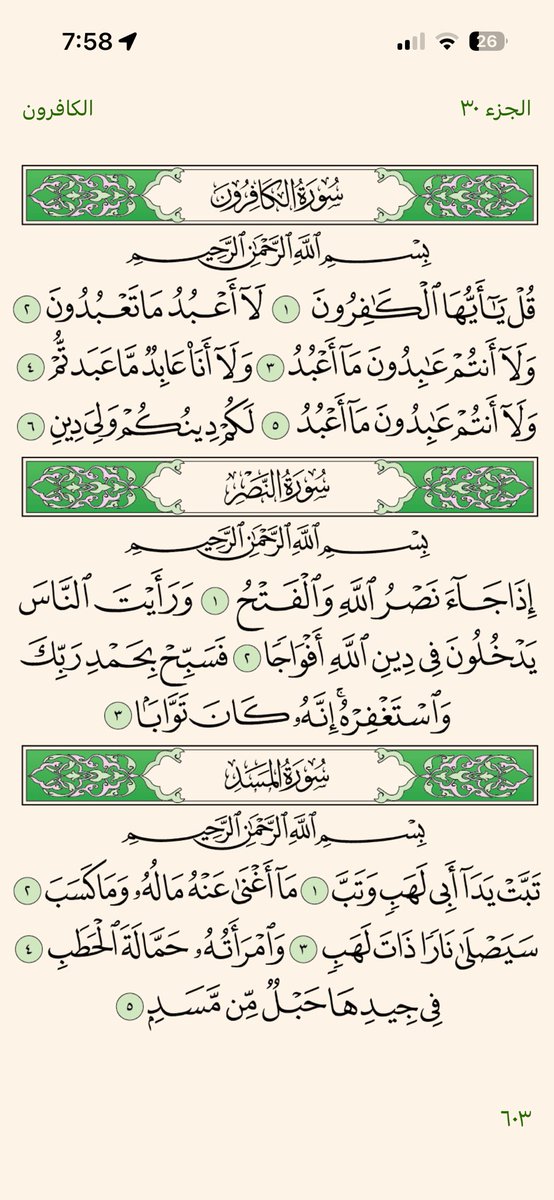 7:58
26
الجزء ٣٠
الكافرون
سُورَةُ الْكَافِرُونَ
بِسْمِ ٱللَّهِ ٱلرَّحْمَٰنِ ٱلرَّحِيمِ
قُلْ يَٰٓأَيُّهَا ٱلْكَٰفِرُونَ ١ لَآ أَعْبُدُ مَا تَعْبُدُونَ ٢
وَلَآ أَنتُمْ عَٰبِدُونَ مَآ أَعْبُدُ ٣ وَلَآ أَنَا۠ عَابِدٌ مَّا عَبَدتُّمْ ٤
وَلَآ أَنتُمْ عَٰبِدُونَ مَآ أَعْبُدُ ٥ لَكُمْ دِينُكُمْ وَلِيَ دِينِ ٦
سُورَةُ النَّصْرِ
بِسْمِ ٱللَّهِ ٱلرَّحْمَٰنِ ٱلرَّحِيمِ
إِذَا جَآءَ نَصْرُ ٱللَّهِ وَٱلْفَتْحُ ١ وَرَأَيْتَ ٱلنَّاسَ
يَدْخُلُونَ فِى دِينِ ٱللَّهِ أَفْوَاجًا ٢ فَسَبِّحْ بِحَمْدِ رَبِّكَ
وَٱسْتَغْفِرْهُ ۚ إِنَّهُۥ كَانَ تَوَّابًۢا ٣
سُورَةُ المَسَدِ
بِسْمِ ٱللَّهِ ٱلرَّحْمَٰنِ ٱلرَّحِيمِ
تَبَّتْ يَدَآ أَبِى لَهَبٍ وَتَبَّ ١ مَآ أَغْنَىٰ عَنْهُ مَالُهُۥ وَمَا كَسَبَ ٢
سَيَصْلَىٰ نَارًا ذَاتَ لَهَبٍ ٣ وَٱمْرَأَتُهُۥ حَمَّالَةَ ٱلْحَطَبِ ٤
فِى جِيدِهَا حَبْلٌ مِّن مَّسَدٍۭ ٥
٦٠٣